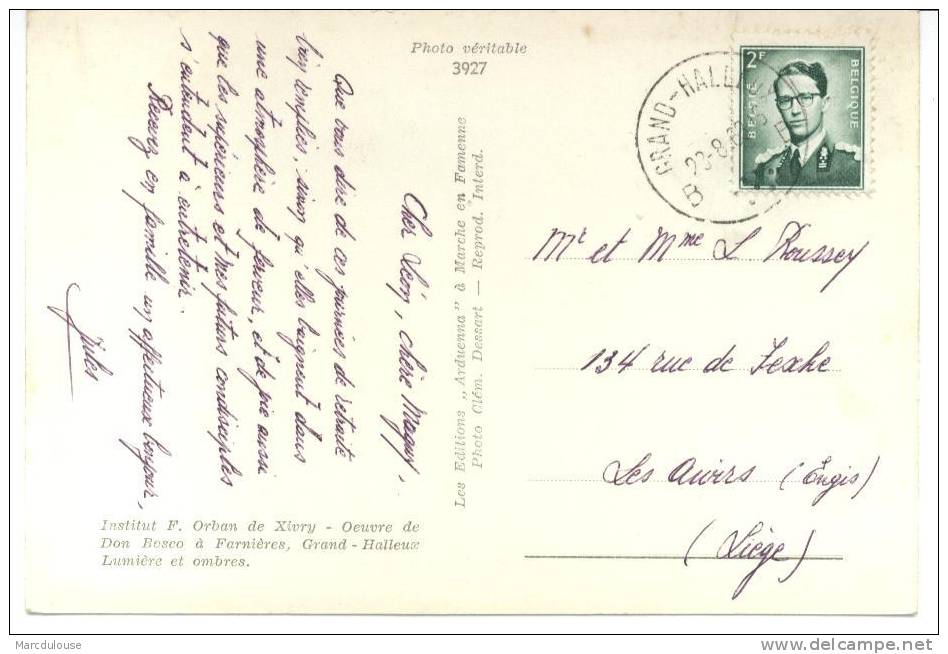 Photo véritable
3927
GRAND-HALLEUX
B
2F
BELGIE
BELGIQUE
Cher Léon, chère Maguy,
Que vous dire de ces journées de retraite
bien remplies, sinon qu'elles baignent dans
une atmosphère de ferveur, et de joie aussi
que les supérieurs et mes futurs condisciples
s'entendent à entretenir.
Recevez en famille un affectueux bonjour,
Jules
Les Editions „Arduenna" à Marche en Famenne
Photo Clém. Dessart — Reprod. Interd.
Mr et Mme L Roussey
134 rue de Fexhe
Les Awirs (Engis)
(Liège)
Institut F. Orban de Xivry - Oeuvre de
Don Bosco à Farnières, Grand-Halleux
Lumière et ombres.
Marcdulouse
www.delcampe.net